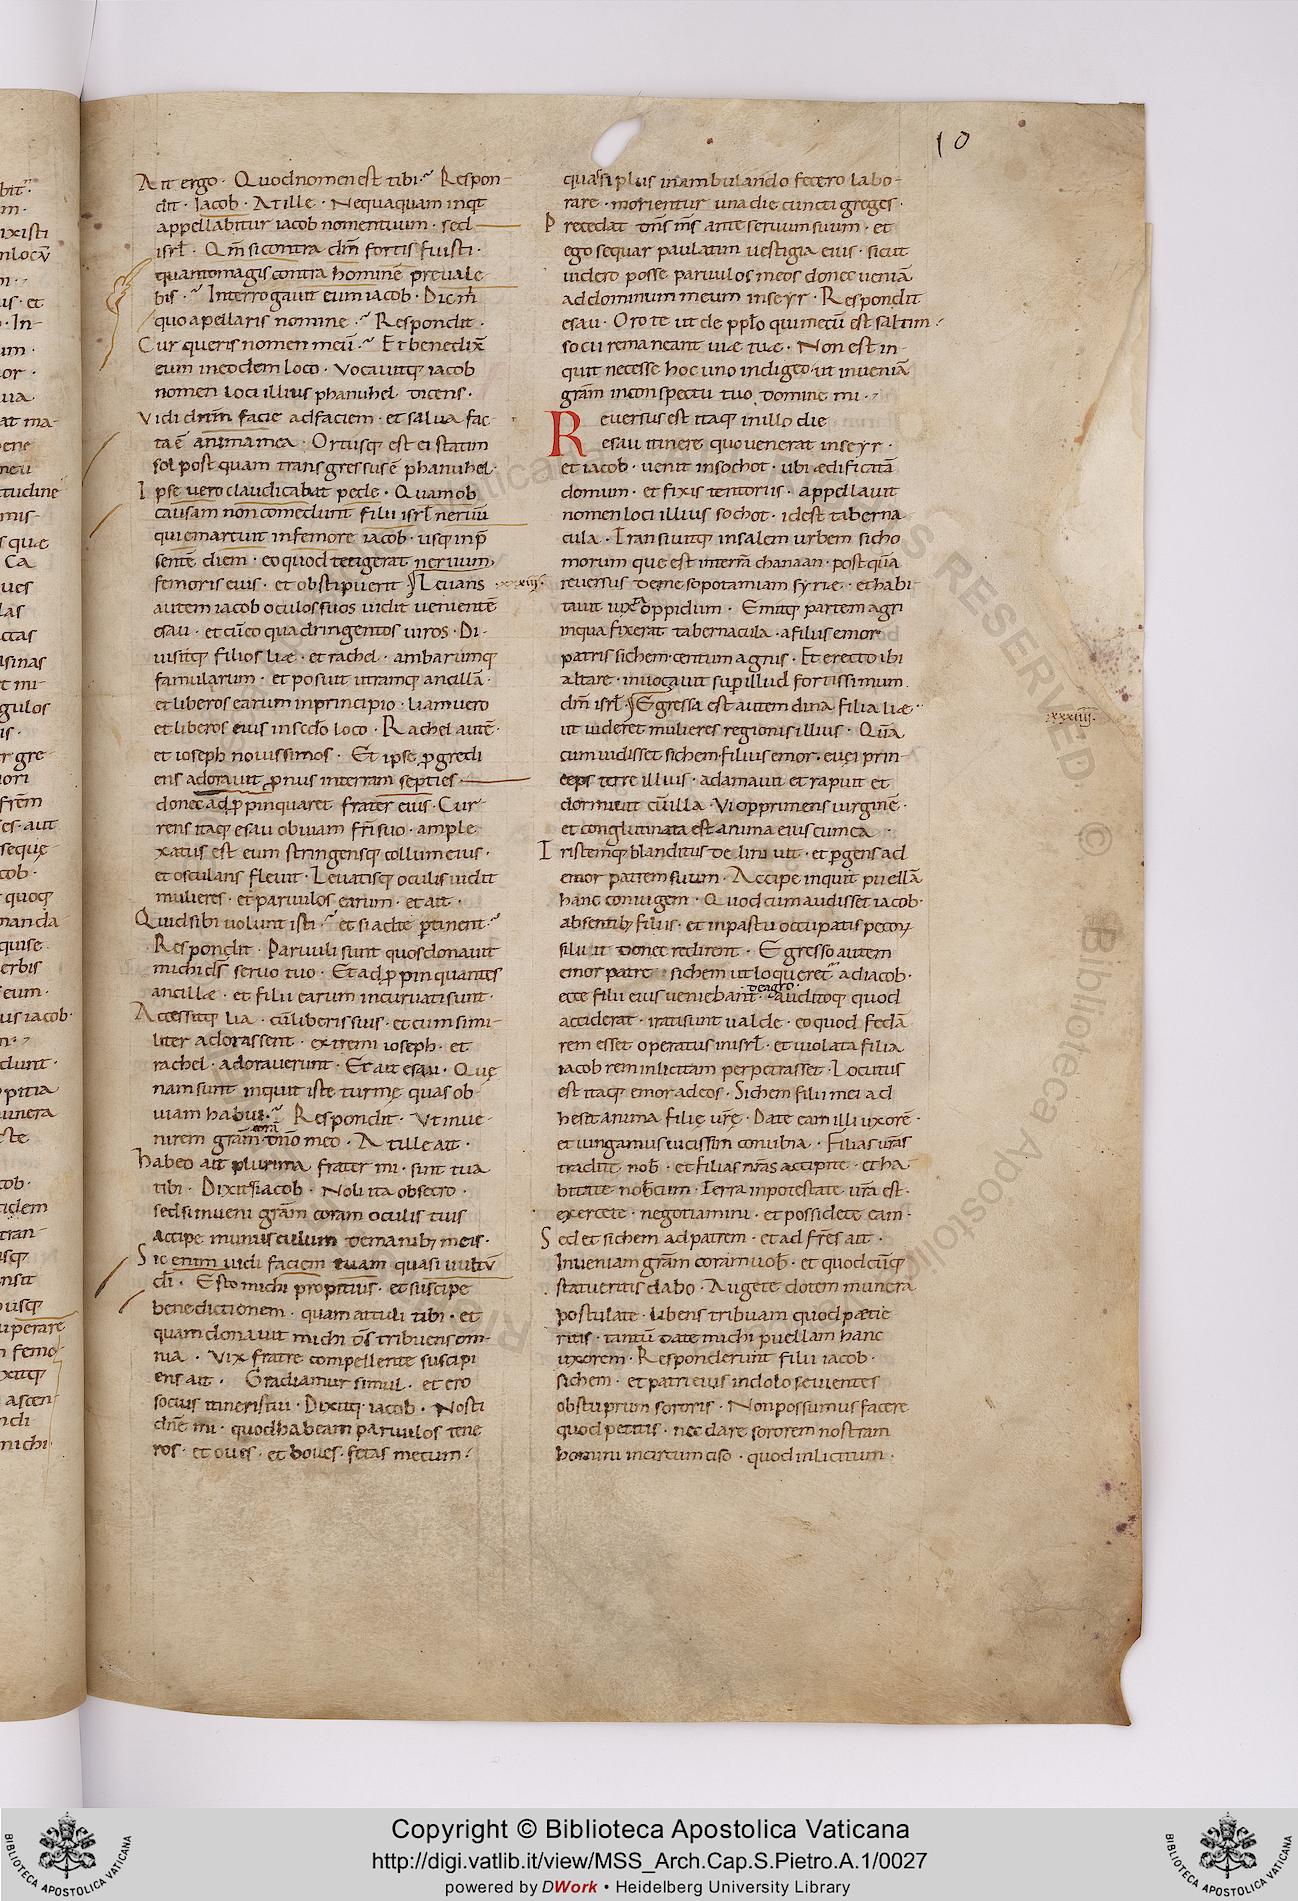 10
Ait ergo · Quod nomen est tibi · Respon-
dit · Jacob · At ille · Nequaquam inqt
appellabitur iacob nomen tuum · sed
isrl̄ · Qm̄ si contra dm̄ fortis fuisti ·
quanto magis contra hominē prevale
bis · Interrogavit eum iacob · Dic m̄
quo apellaris nomine · Respondit ·
Cur queris nomen meū · Et benedix̄
eum in eodem loco · Vocavitq; iacob
nomen loci illius phanuhel dicens ·
Vidi dnm̄ facie ad faciem · et salva fac-
ta ē anima mea · Ortusq; est ei statim
sol post quam transgressus ē phanuhel ·
Ipse vero claudicabat pede · Quam ob
causam non comedunt filii isrl̄ nervū
qui emarcuit in femore iacob · usq; in p̄
sentē diem · eo quod tetigerat nervum
femoris eius · et obstipuerit · Levans · xxxiii ·
autem iacob oculos suos vidit venientē
esau · et cū eo quadringentos viros · Di-
visitq; filios liæ · et rachel · ambarumq;
famularum · et posuit utramq; ancillā ·
et liberos earum in principio · liam vero
et liberos eius in sedo loco · Rachel autē ·
et ioseph novissimos · Et ipse p̱gredi
ens adoravit p̱nus in terram septies ·
donec adp̱pinquaret frater eius · Cur-
rens itaq; esau obviam fr̄i suo · ample
xatus est eum stringensq; collum eius ·
et osculans flevit · Levatisq; oculis vidit
mulieres · et parvulos earum · et ait ·
Quid sibi volunt isti · et si ad te ptinent ·
Respondit · Parvuli sunt quos donavit
michi ds̄ servo tuo · Et adp̱pinquantes
ancillæ · et filii earum incurvati sunt ·
Accessitq; lia · cū liberis suis · et cum simi-
liter adorassent · extremi ioseph · et
rachel · adoraverunt · Et ait esau · Quę
nam sunt inquit iste turmę quas ob-
viam habui · Respondit · Ut inve-
nirem grām corā dno meo · At ille ait ·
habeo ait plurima frater mi · sunt tua
tibi · Dixit iacob · Noli ita obsecro ·
sed si inveni grām coram oculis tuis
accipe munusculum de manib; meis ·
Sic enim vidi faciem tuam quasi vultū
di · Esto michi propitius · et suscipe
benedictionem · quam attuli tibi · et
quam donavit michi ds̄ tribuens om-
nia · Vix fratre compellente suscipi
ens ait · Gradiamur simul · et ero
socius itineris tui · Dixitq; iacob · Nosti
dn̄e mi · quod habeam parvulos tene
ros · et oves · et boves · fetas mecum ·
quas si plus in ambulando fecero labo-
rare · morientur una die cuncti greges ·
Precedat dns̄ ms̄ ante servum suum · et
ego sequar paulatim vestigia eius · sicut
videro posse parvulos meos donec veniā
ad dominum meum in seyr · Respondit
esau · Oro te ut de pplo qui mecū est saltim
socii remaneant viæ tuæ · Non est in-
quit necesse hoc uno indigeo ut inveniā
grām in conspectu tuo domine mi ·
Reversus est itaq; in illo die
esau itinere quo venerat in seyr ·
et iacob · venit in sochot · ubi ædificatā
domum · et fixis tentoriis · appellavit
nomen loci illius sochot · id est taberna
cula · Transivitq; in salem urbem sicho
morum que est in terrā chanaan · postquā
reversus de mesopotamiam syriæ · et habi
tavit iuxta oppidum · Emitq; partem agri
in qua fixerat tabernacula · a filiis emor
patris sichem · centum agnis · Et erecto ibi
altare · invocavit sup illud fortissimum
dm̄ isrl̄ · Egressa est autem dina filia liæ · xxxiiii ·
ut videret mulieres regionis illius · Quā
cum vidisset sichem filius emor · euei prin-
ceps terre illius · adamavit et rapuit et
dormivit cū illa · Vi opprimens virginē ·
et conglutinata est anima eius cum ea ·
Tristemq; blanditus delinivit · et pgens ad
emor patrem suum · Accipe inquit puellā
hanc coniugem · Quod cum audisset iacob ·
absentib; filiis · et in pastu occupatis pecorꝝ
siluit donec redirent · Egresso autem
emor patre sichem ut loqueret̄ ad iacob ·
ecce filii eius veniebant de agro · auditoq; quod
acciderat · irati sunt valde · eo quod fedā
rem esset operatus in isrl̄ · et violata filia
iacob rem inlicitam perpetrasset · Locutus
est itaq; emor ad eos · Sichem filii mei ad
hesit anima filię vrę · Date eam illi uxorē ·
et iungamus vicissim conubia · Filias vras
tradite nob̄ · et filias nras accipite · et ha-
bitate nobcum · Terra in potestate vra est ·
exercete · negotiamini · et possidete eam ·
Sed et sichem ad patrem · et ad frēs ait ·
Inveniam grām coram vob̄ · et quodcūq;
statueritis dabo · Augete dotem munera
postulate · libens tribuam quod petie
ritis · tantū date michi puellam hanc
uxorem · Responderunt filii iacob ·
sichem · et patri eius in dolo sevientes
ob stuprum sororis · Non possumus facere
quod petitis · nec dare sororem nostram
homini incircumciso · quod inlicitum ·
Copyright © Biblioteca Apostolica Vaticana
http://digi.vatlib.it/view/MSS_Arch.Cap.S.Pietro.A.1/0027
powered by DWork • Heidelberg University Library
BIBLIOTECA APOSTOLICA VATICANA
BIBLIOTECA APOSTOLICA VATICANA